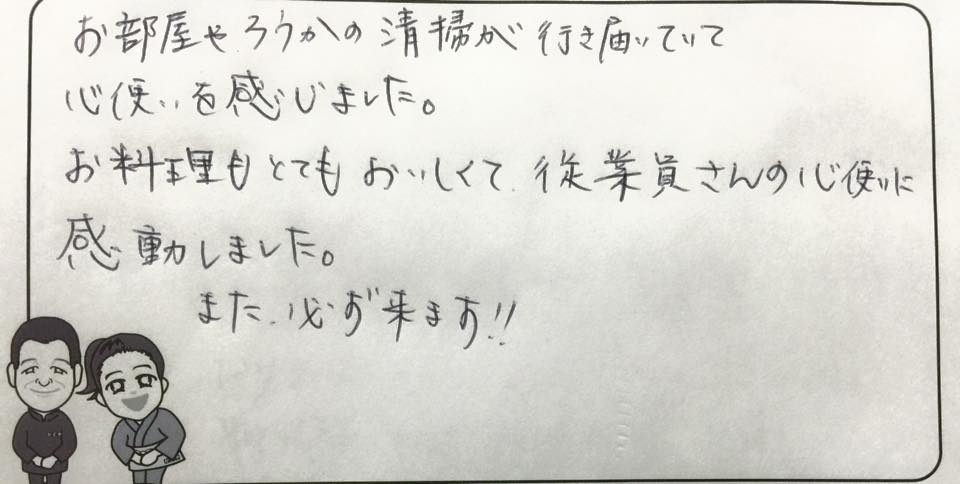 お部屋やろうかの清掃が行き届いていて
心使いを感じました。
お料理もとてもおいしくて、従業員さんの心使いに
感動しました。
また、必ず来ます!!